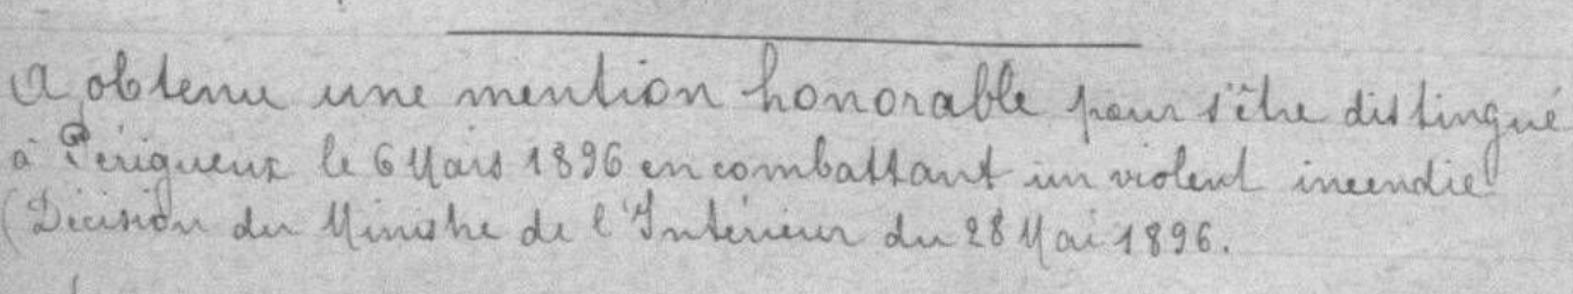 A obtenu une mention honorable pour s'être distingué
à Périgueux le 6 Mars 1896 en combattant un violent incendie
(Décision du Ministre de l'Intérieur du 28 Mai 1896.